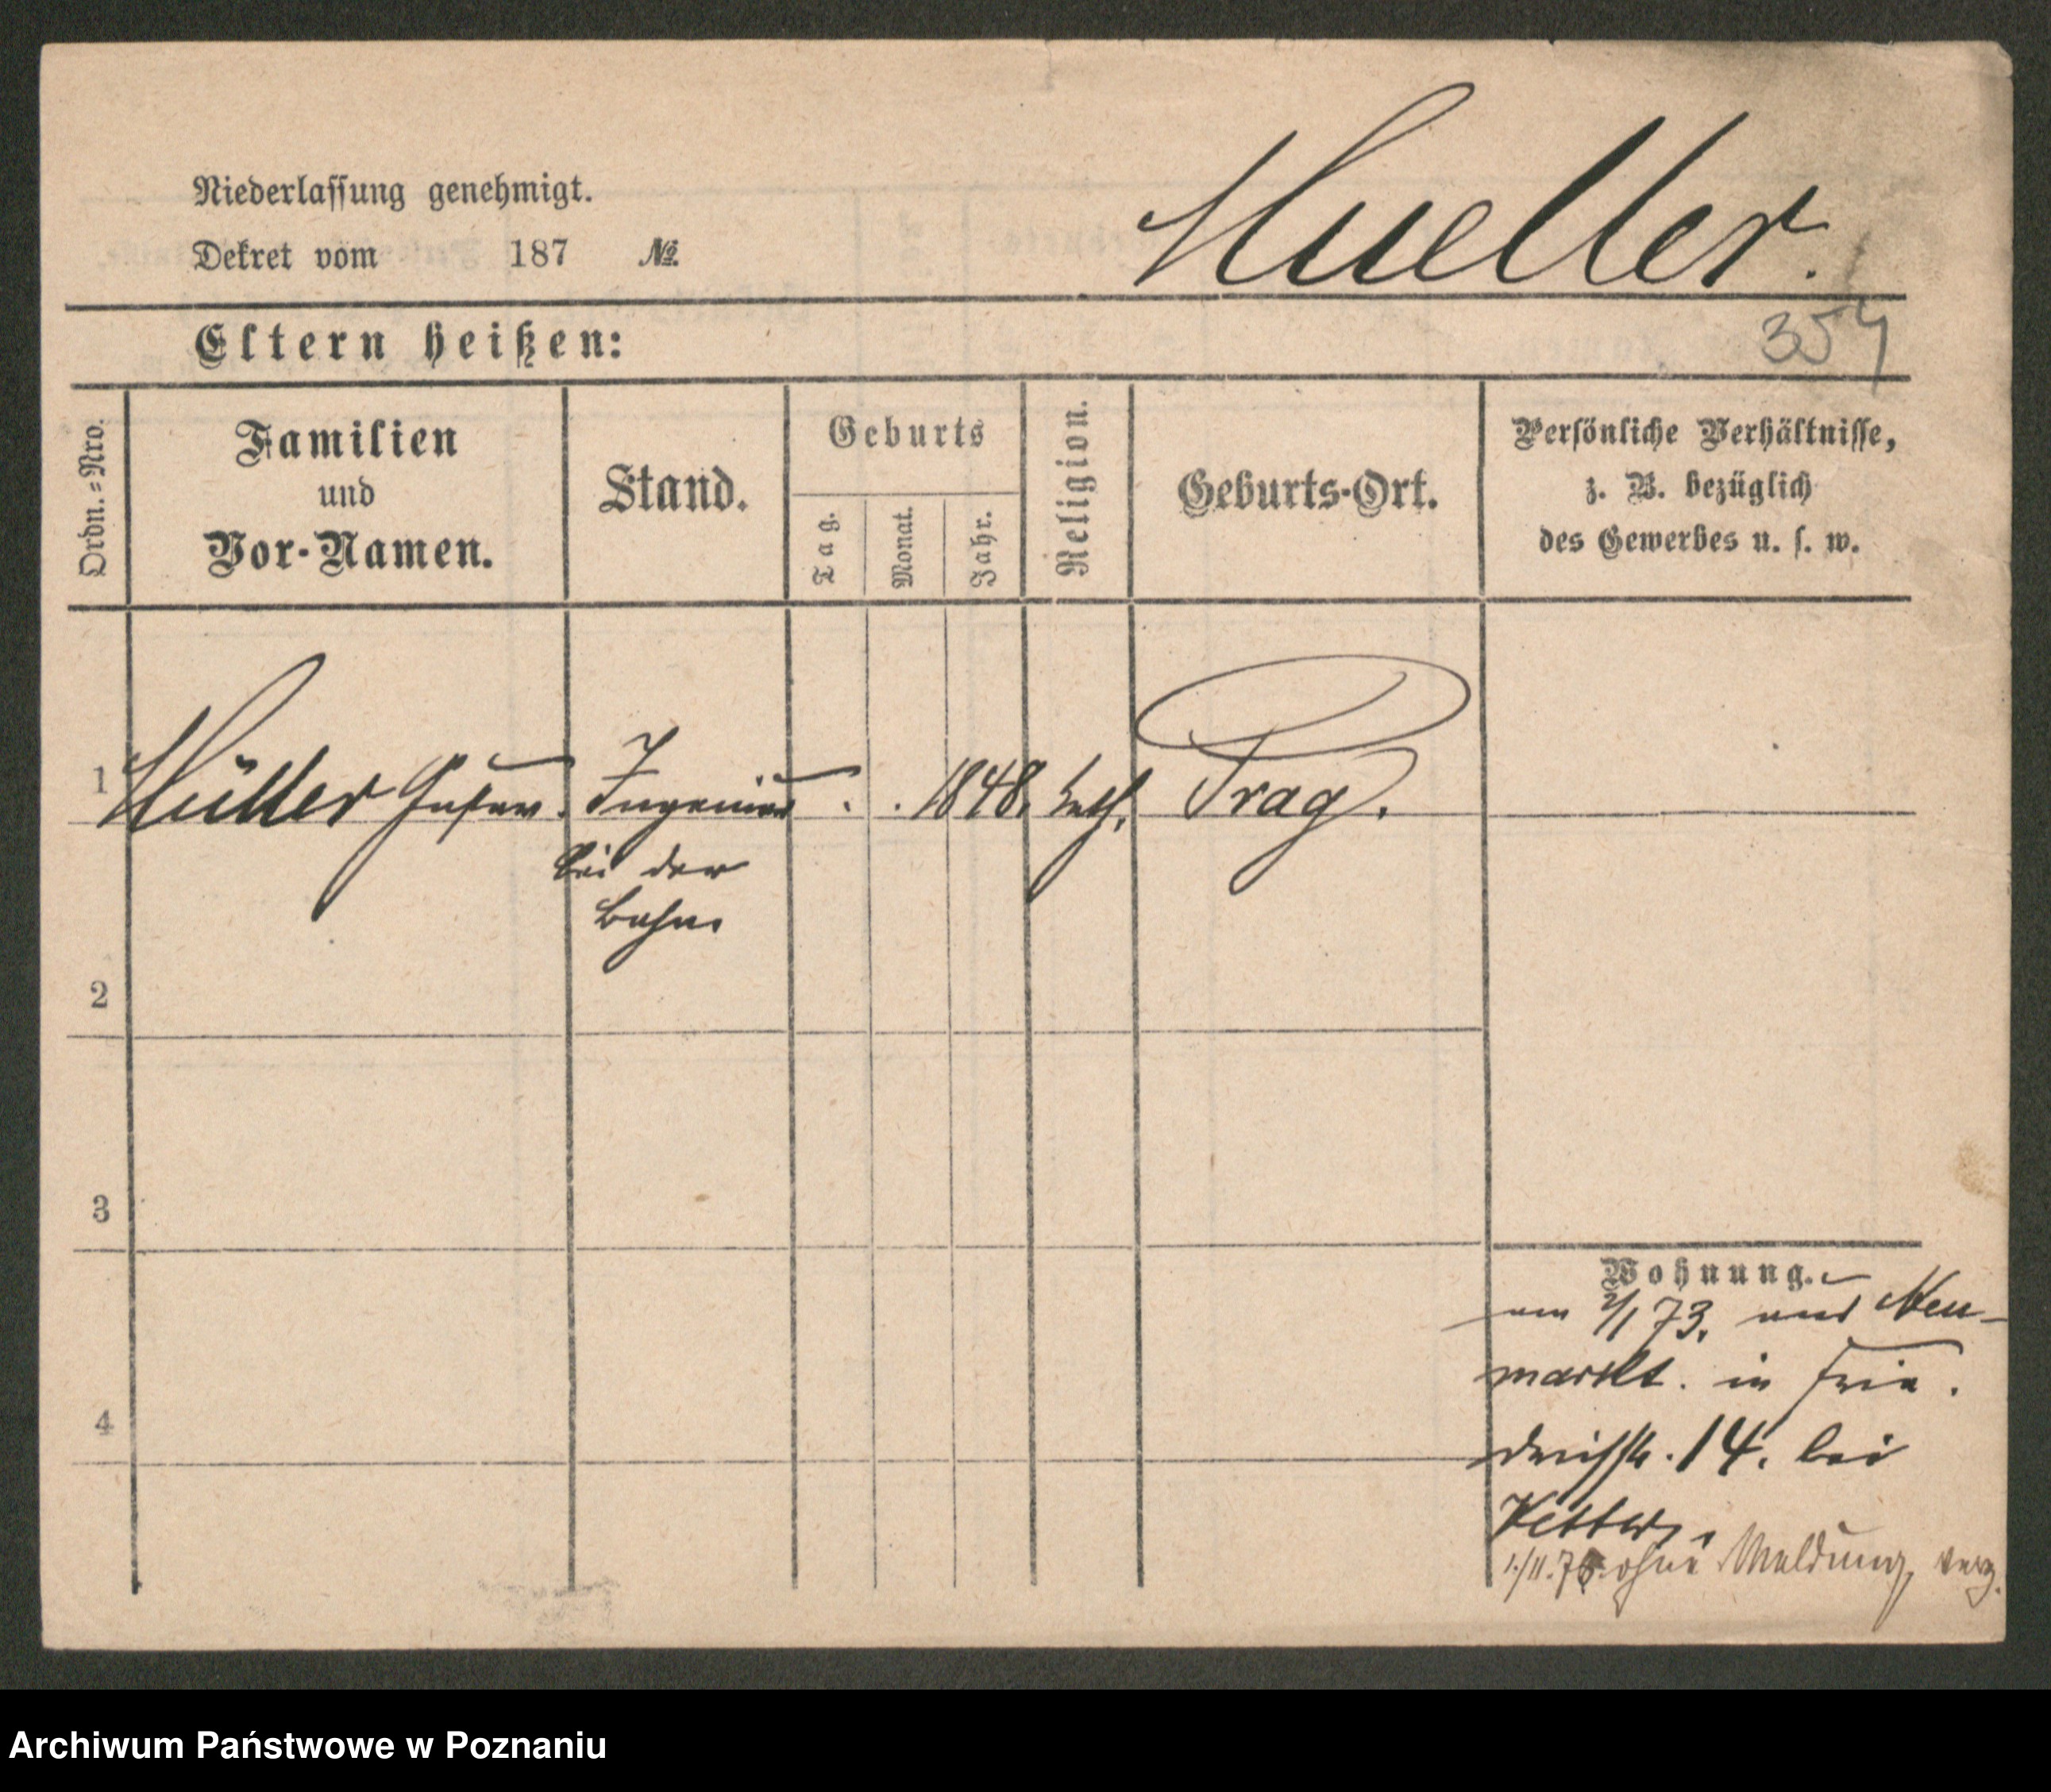 Niederlassung genehmigt.
Dekret vom 187 №
Mueller.
354
Eltern heißen:
Ordn.=Nro.
Familien
und
Vor-Namen.
Stand.
Geburts
Tag.
Monat.
Jahr.
Religion.
Geburts-Ort.
Persönliche Verhältnisse,
z. B. bezüglich
des Gewerbes u. s. w.
1 Müller Gustav. Ingenieur . . 1848. kath. Prag.
bei der
Bahn
2
3
4
Wohnung.
am 2/1 73. aus Neu-
markt. in Frie.
drichstr. 14. bei
ohne Meldung verz.